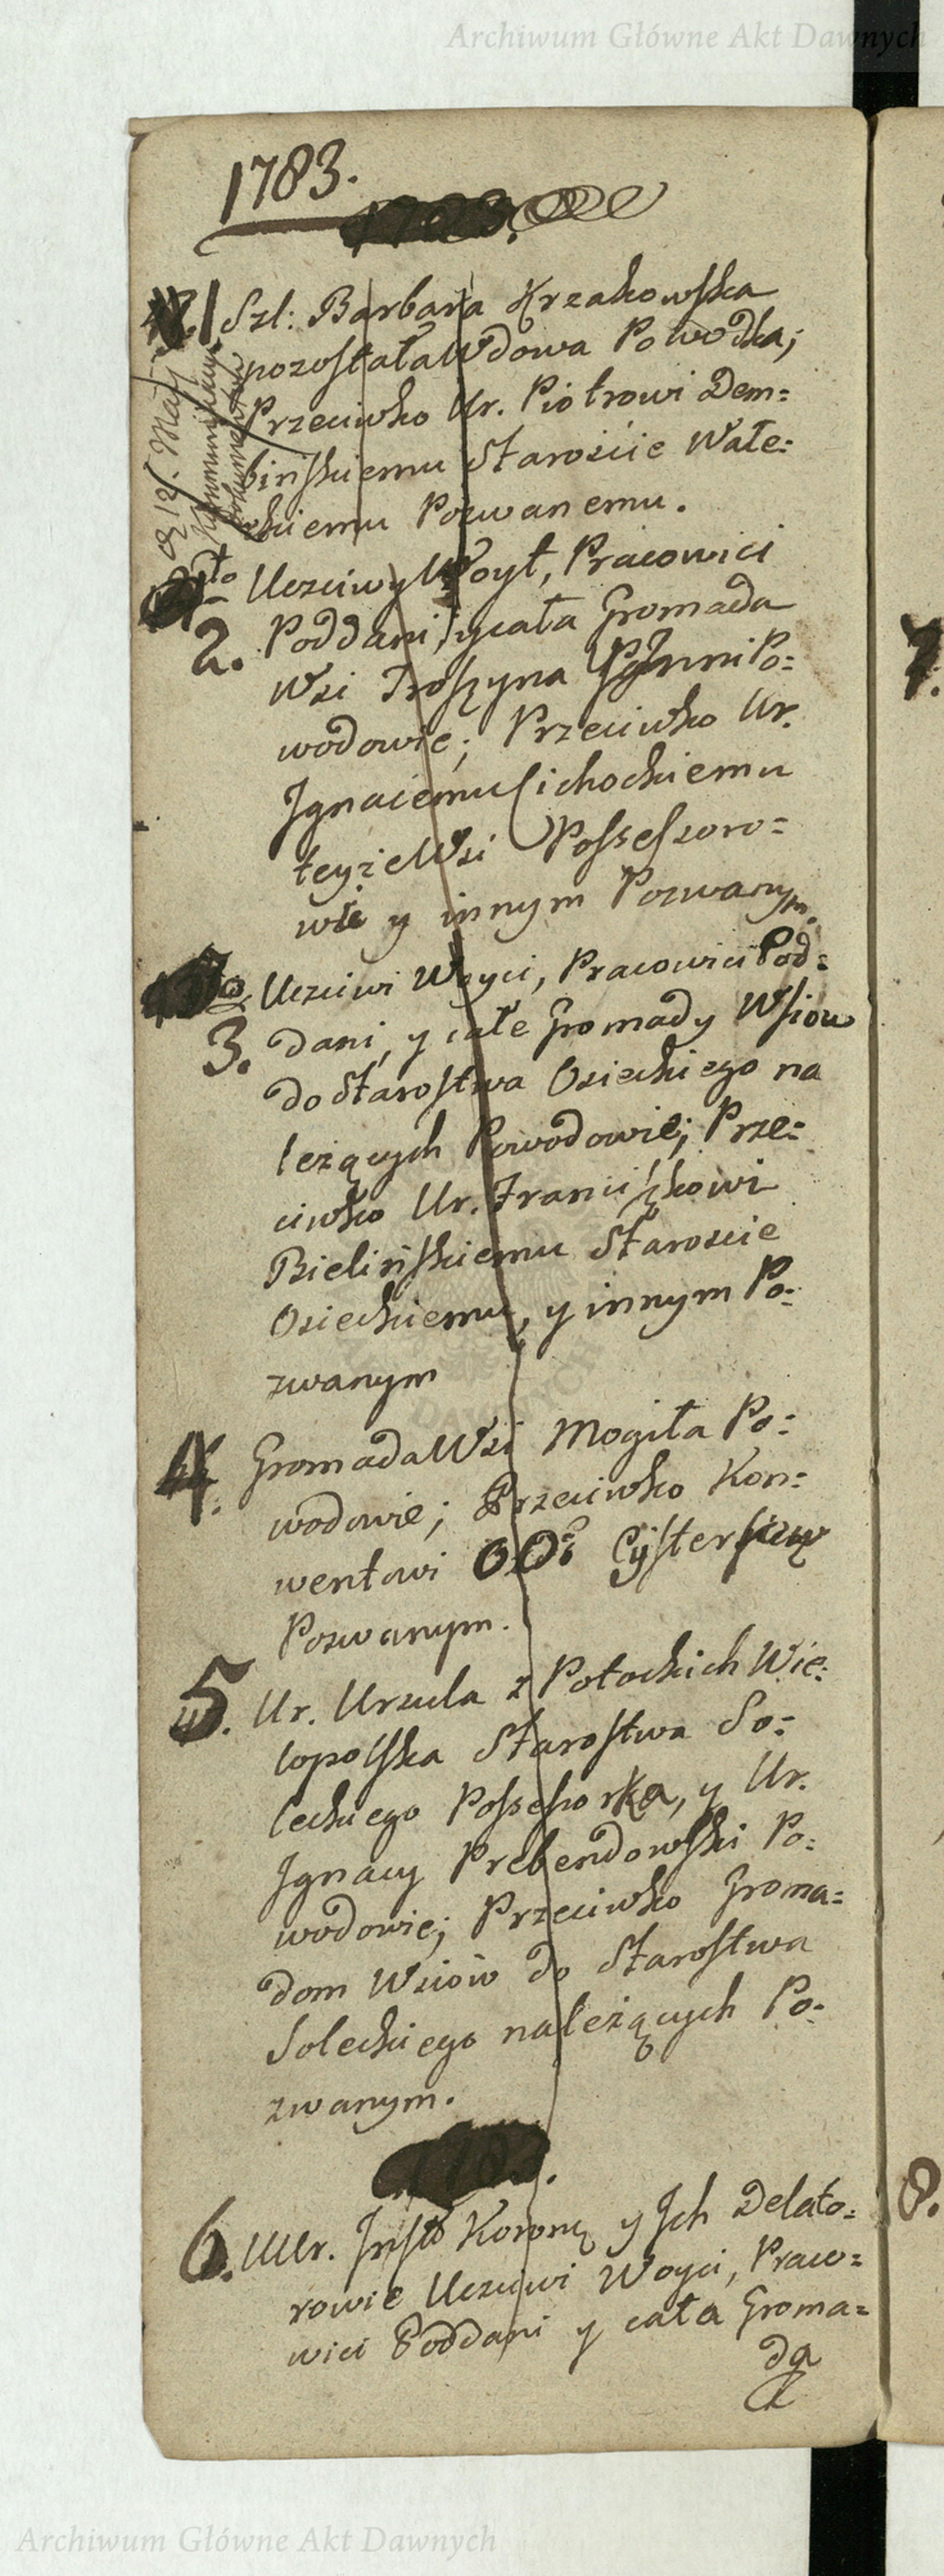 Archiwum Główne Akt Dawnych
1783.
1. Szl: Barbara Krzakowska
pozostała Wdowa Powodka;
Przeciwko Ur. Piotrowi Dem=
bińskiemu Staroście Wałe:
ckiemu Pozwanemu.
d 12. Maij
Kommunikacya
Dokumentow
2. Uczciwy Woyt, Pracowici
Poddani, y cała Gromada
Wsi Troszyna Po=
wodowie; Przeciwko Ur.
Ignacemu Cichockiemu
teyże Wsi Possessoro=
wie y innym Pozwanym.
3. Uczciwi Woyci, Pracowici Pod=
dani, y całe Gromady Wsiow
do Starostwa Osieckiego na
leżących Powodowie; Prze=
ciwko Ur. Franciszkowi
Bielińskiemu Staroscie
Osieckiemu, y innym Po:
zwanym
4. Gromada Wsi Mogiła Po:
wodowie; Przeciwko Kon=
wentowi OO: Cystersow
Pozwanym.
5. Ur. Urszula z Potockich Wie:
lopolska Starostwa So=
leckiego Possessorka, y Ur.
Ignacy Prebendowski Po:
wodowie; Przeciwko Groma=
dom Wsiów do Starostwa
Soleckiego należących Po:
zwanym.
6. UUr. Inst Koronę y Ich Delato=
rowie Uczciwi Woyci, Praco=
wici Poddani y cała Groma=
da
7.
8.
Archiwum Główne Akt Dawnych